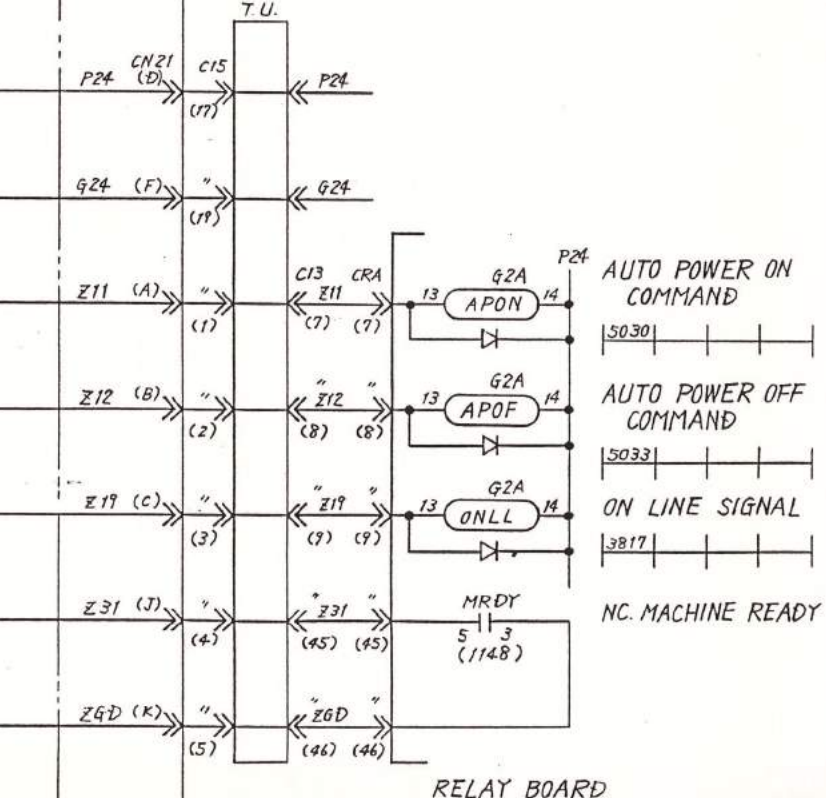 T.U.
P24 CN21 (D) C15 (17) P24
G24 (F) " (19) G24
C13 CRA P24
Z11 (A) " (1) Z11 (7) (7) 13 G2A APON 14 AUTO POWER ON COMMAND
5030
Z12 (B) " (2) " Z12 " (8) (8) 13 G2A APOF 14 AUTO POWER OFF COMMAND
5033
Z19 (C) " (3) " Z19 " (9) (9) 13 G2A ONLL 14 ON LINE SIGNAL
3817
Z31 (J) " (4) " Z31 " (45) (45) MRDY 5 3 (1148) NC. MACHINE READY
ZGD (K) " (5) " ZGD " (46) (46)
RELAY BOARD